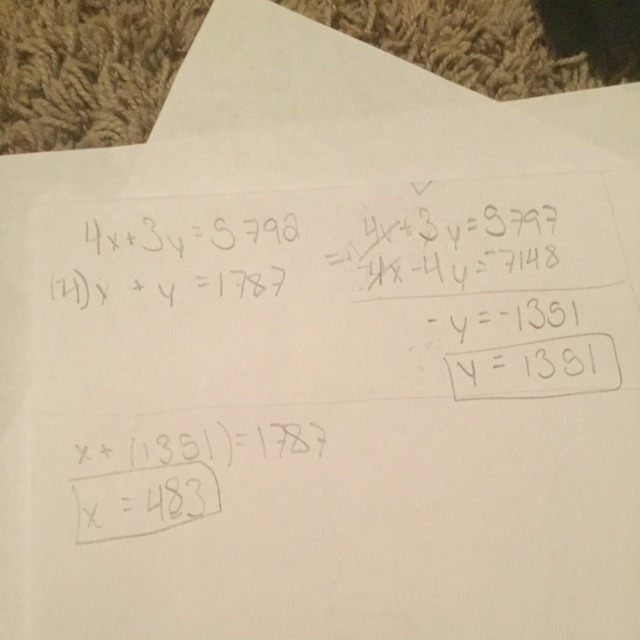 4x+3y=5790
(-4)x + y =1787
4x+3y=5797
=-4x-4y=-7148
-y=-1351
y=1351
x+(1351)=1787
x=483